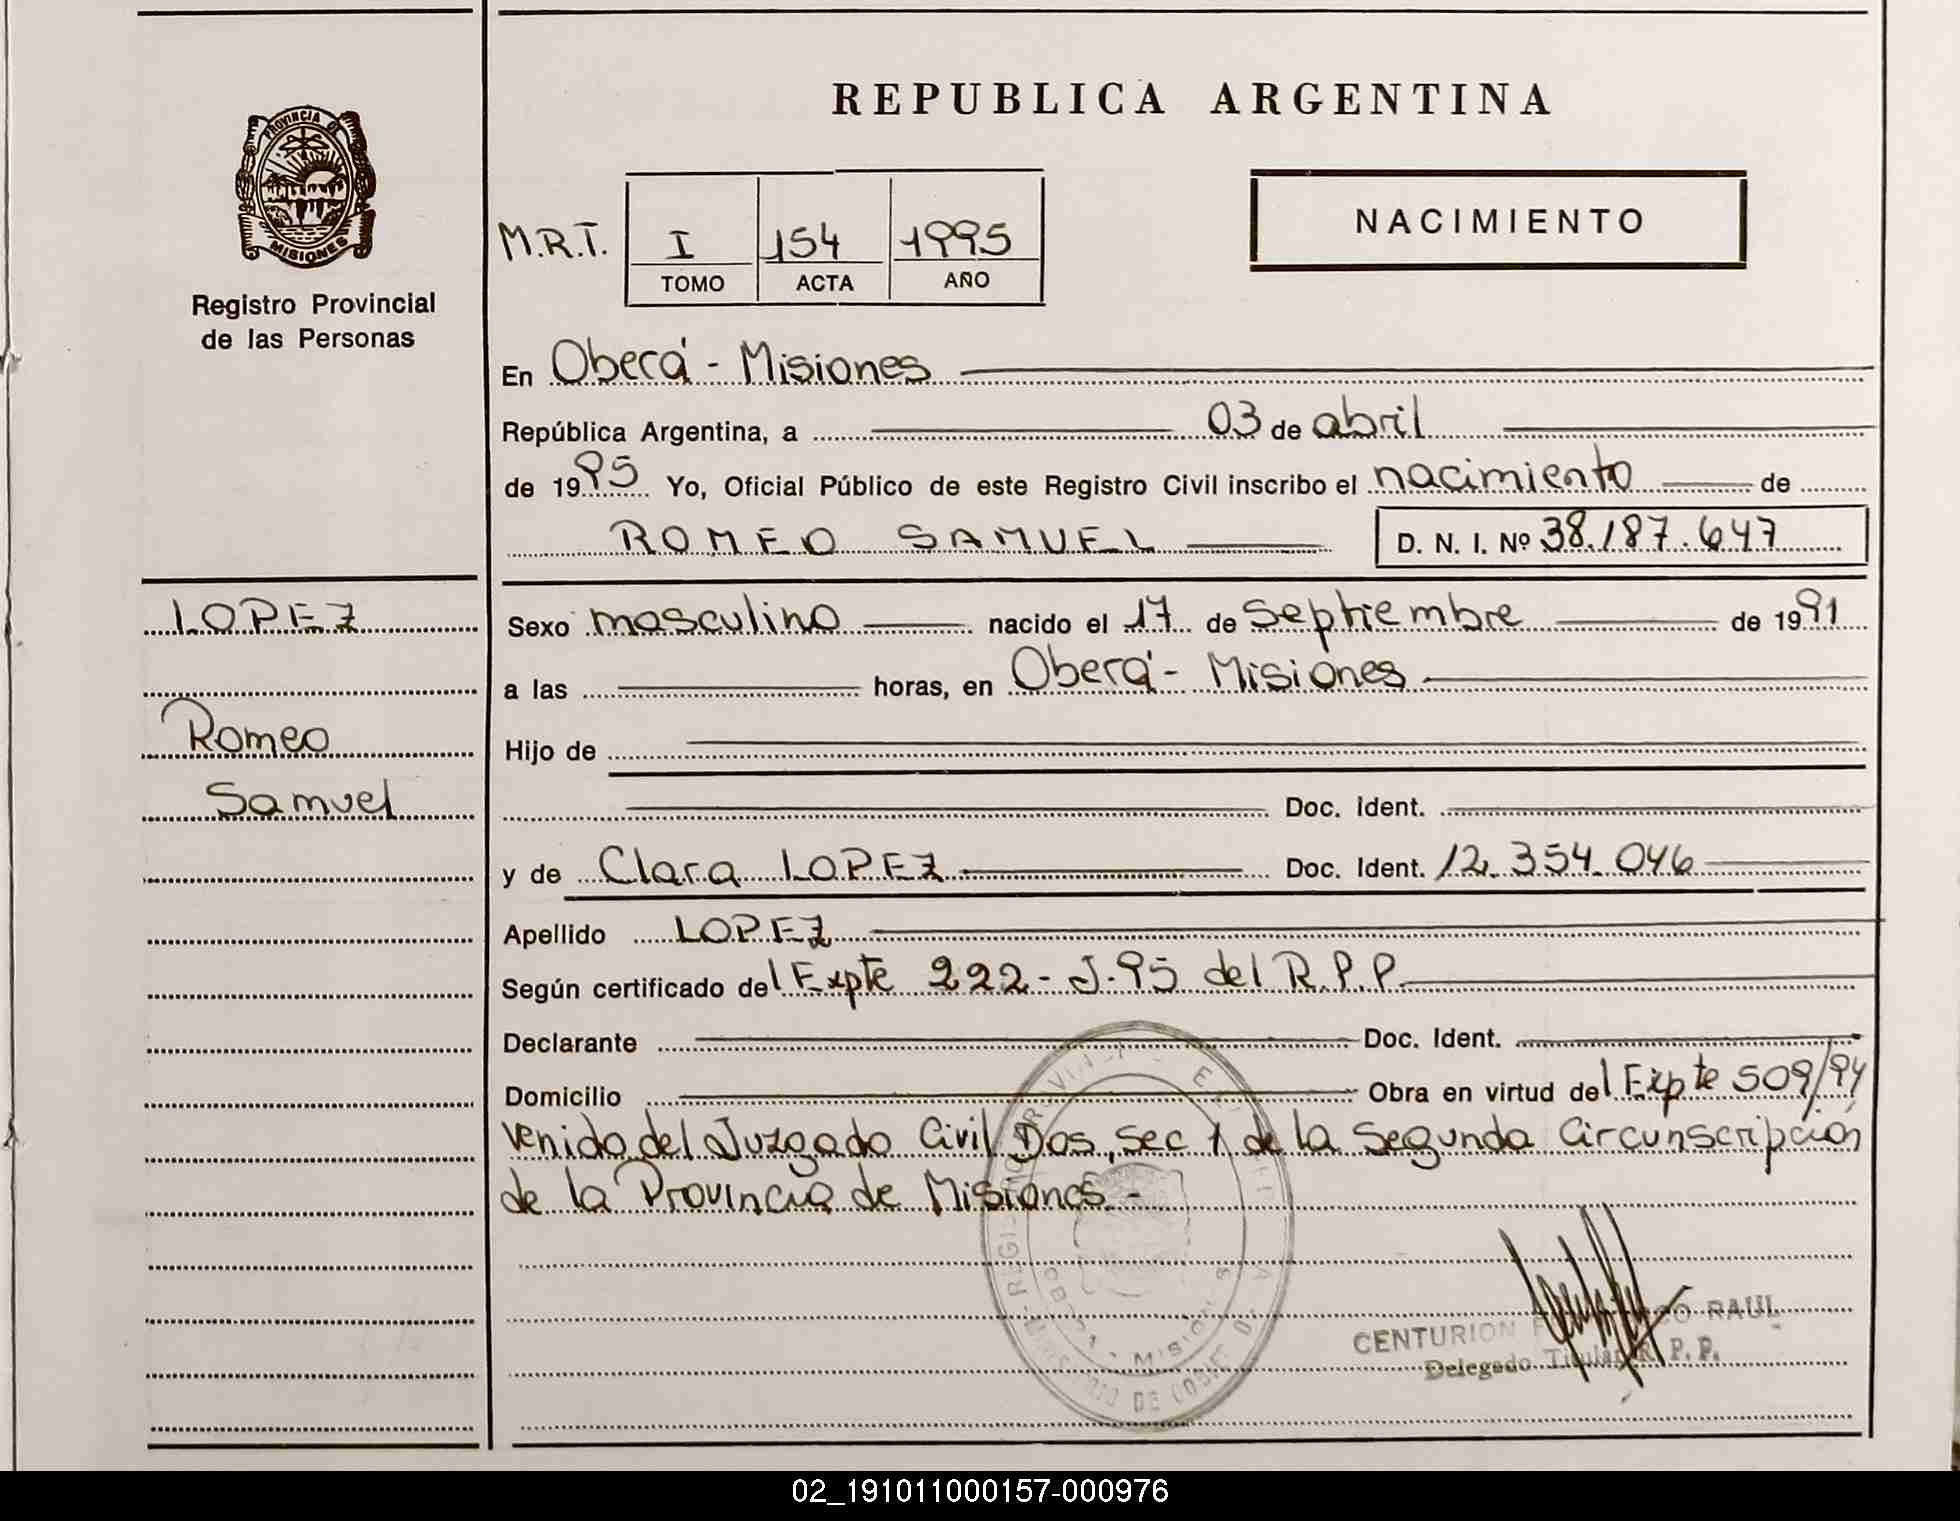 REPUBLICA ARGENTINA
PROVINCIA DE
MISIONES
Registro Provincial
de las Personas
M.R.T. I 154 1995
TOMO ACTA AÑO
NACIMIENTO
En Oberá - Misiones
República Argentina, a 03 de abril
de 1995 Yo, Oficial Público de este Registro Civil inscribo el nacimiento de
ROMEO SAMUEL D. N. I. Nº 38.187.647
LOPEZ
Romeo
Samuel
Sexo masculino nacido el 17 de Septiembre de 1991
a las horas, en Oberá - Misiones
Hijo de
Doc. Ident.
y de Clara LOPEZ Doc. Ident. 12.354.046
Apellido LOPEZ
Según certificado del Expte 222-J-95 del R.P.P.
Declarante Doc. Ident.
Domicilio Obra en virtud del Expte 509/94
venido del Juzgado Civil Dos, Sec 1 de la Segunda Circunscripción
de la Provincia de Misiones.-
CENTURION RAUL
Delegado Titular R. P. P.
02_191011000157-000976